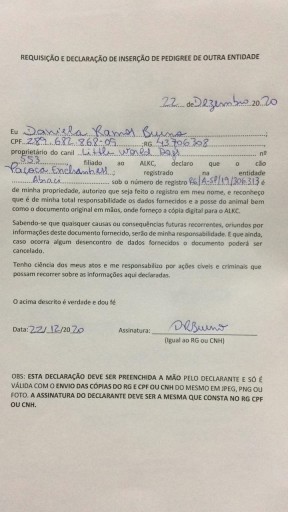 REQUISIÇÃO E DECLARAÇÃO DE INSERÇÃO DE PEDIGREE DE OUTRA ENTIDADE
22 de Dezembro 20 20
Eu Daniella Ramos Bueno
CPF 289.682.868-09 RG 43706308
proprietário do canil Little World Dogs nº
553 filiado ao ALKC, declaro que o cão
Paçoca registrado na entidade
sob o número de registro é
de minha propriedade, autorizo que seja feito o registro em meu nome, e reconheço
que é de minha total responsabilidade os dados fornecidos e a posse do animal bem
como o documento original em mãos, onde forneço a cópia digital para o ALKC.
Sabendo-se que quaisquer causas ou consequências futuras recorrentes, oriundos por
informações deste documento fornecido, serão de minha responsabilidade. E que ainda,
caso ocorra algum desencontro de dados fornecidos o documento poderá ser
cancelado.
Tenho ciência dos meus atos e me responsabilizo por ações cíveis e criminais que
possam recorrer as informações aqui declaradas.
O acima descrito é verdade e dou fé
Data: 22/12/2020 Assinatura: DRBueno
(Igual ao RG ou CNH)
OBS: ESTA DECLARAÇÃO DEVE SER PREENCHIDA A MÃO PELO DECLARANTE E SÓ É
VÁLIDA COM O ENVIO DAS CÓPIAS DO RG E CPF OU CNH DO MESMO EM JPEG, PNG OU
FOTO. A ASSINATURA DO DECLARANTE DEVE SER A MESMA QUE CONSTA NO RG CPF
OU CNH.